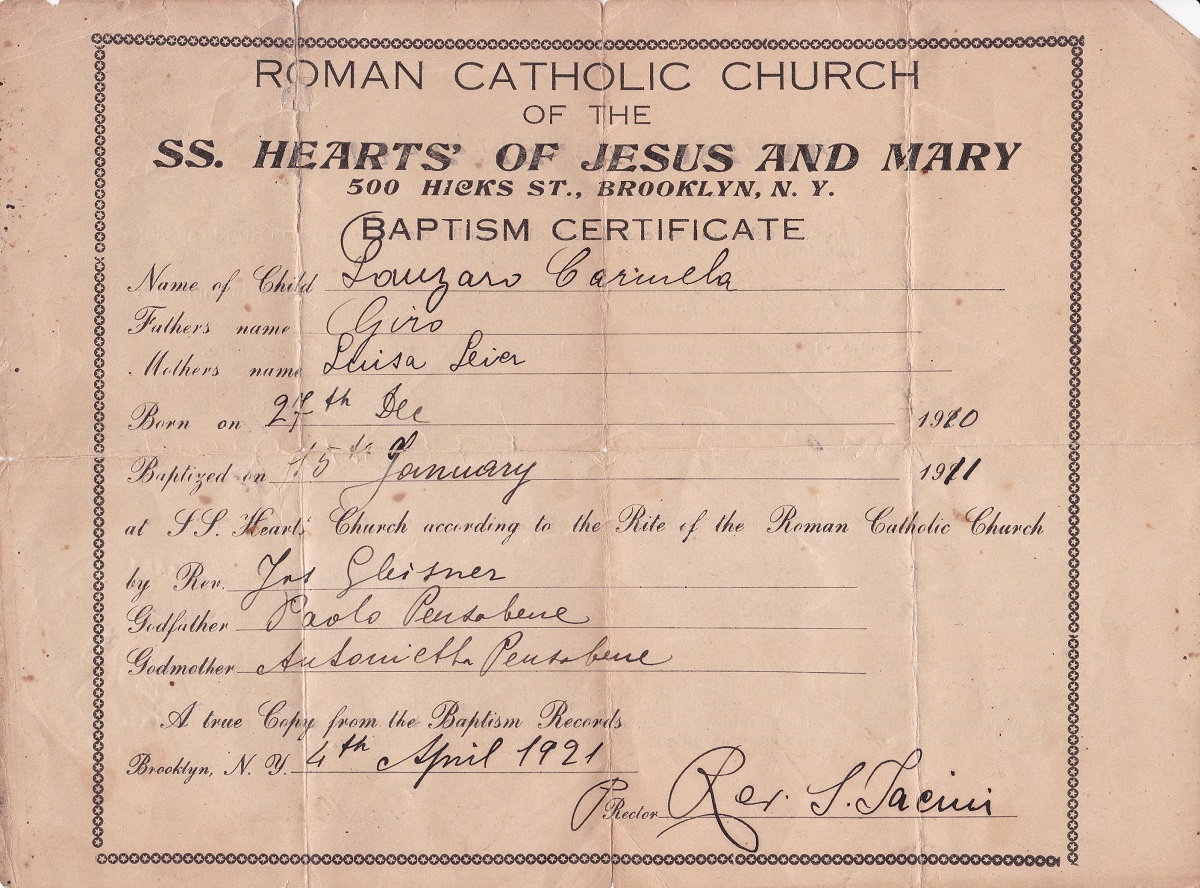 ROMAN CATHOLIC CHURCH
OF THE
SS. HEARTS' OF JESUS AND MARY
500 HICKS ST., BROOKLYN, N. Y.
BAPTISM CERTIFICATE
Name of Child Lanzaro Carmela
Fathers name Giro
Mothers name Luisa Leier
Born on 27th Dec 1910
Baptized on 15th January 1911
at S.S. Hearts' Church according to the Rite of the Roman Catholic Church
by Rev. Jos Gleisner
Godfather Paolo Pensabene
Godmother Antonietta Pensabene
A true Copy from the Baptism Records
Brooklyn, N. Y. 4th April 1921
Rector Rev. S. Jacini